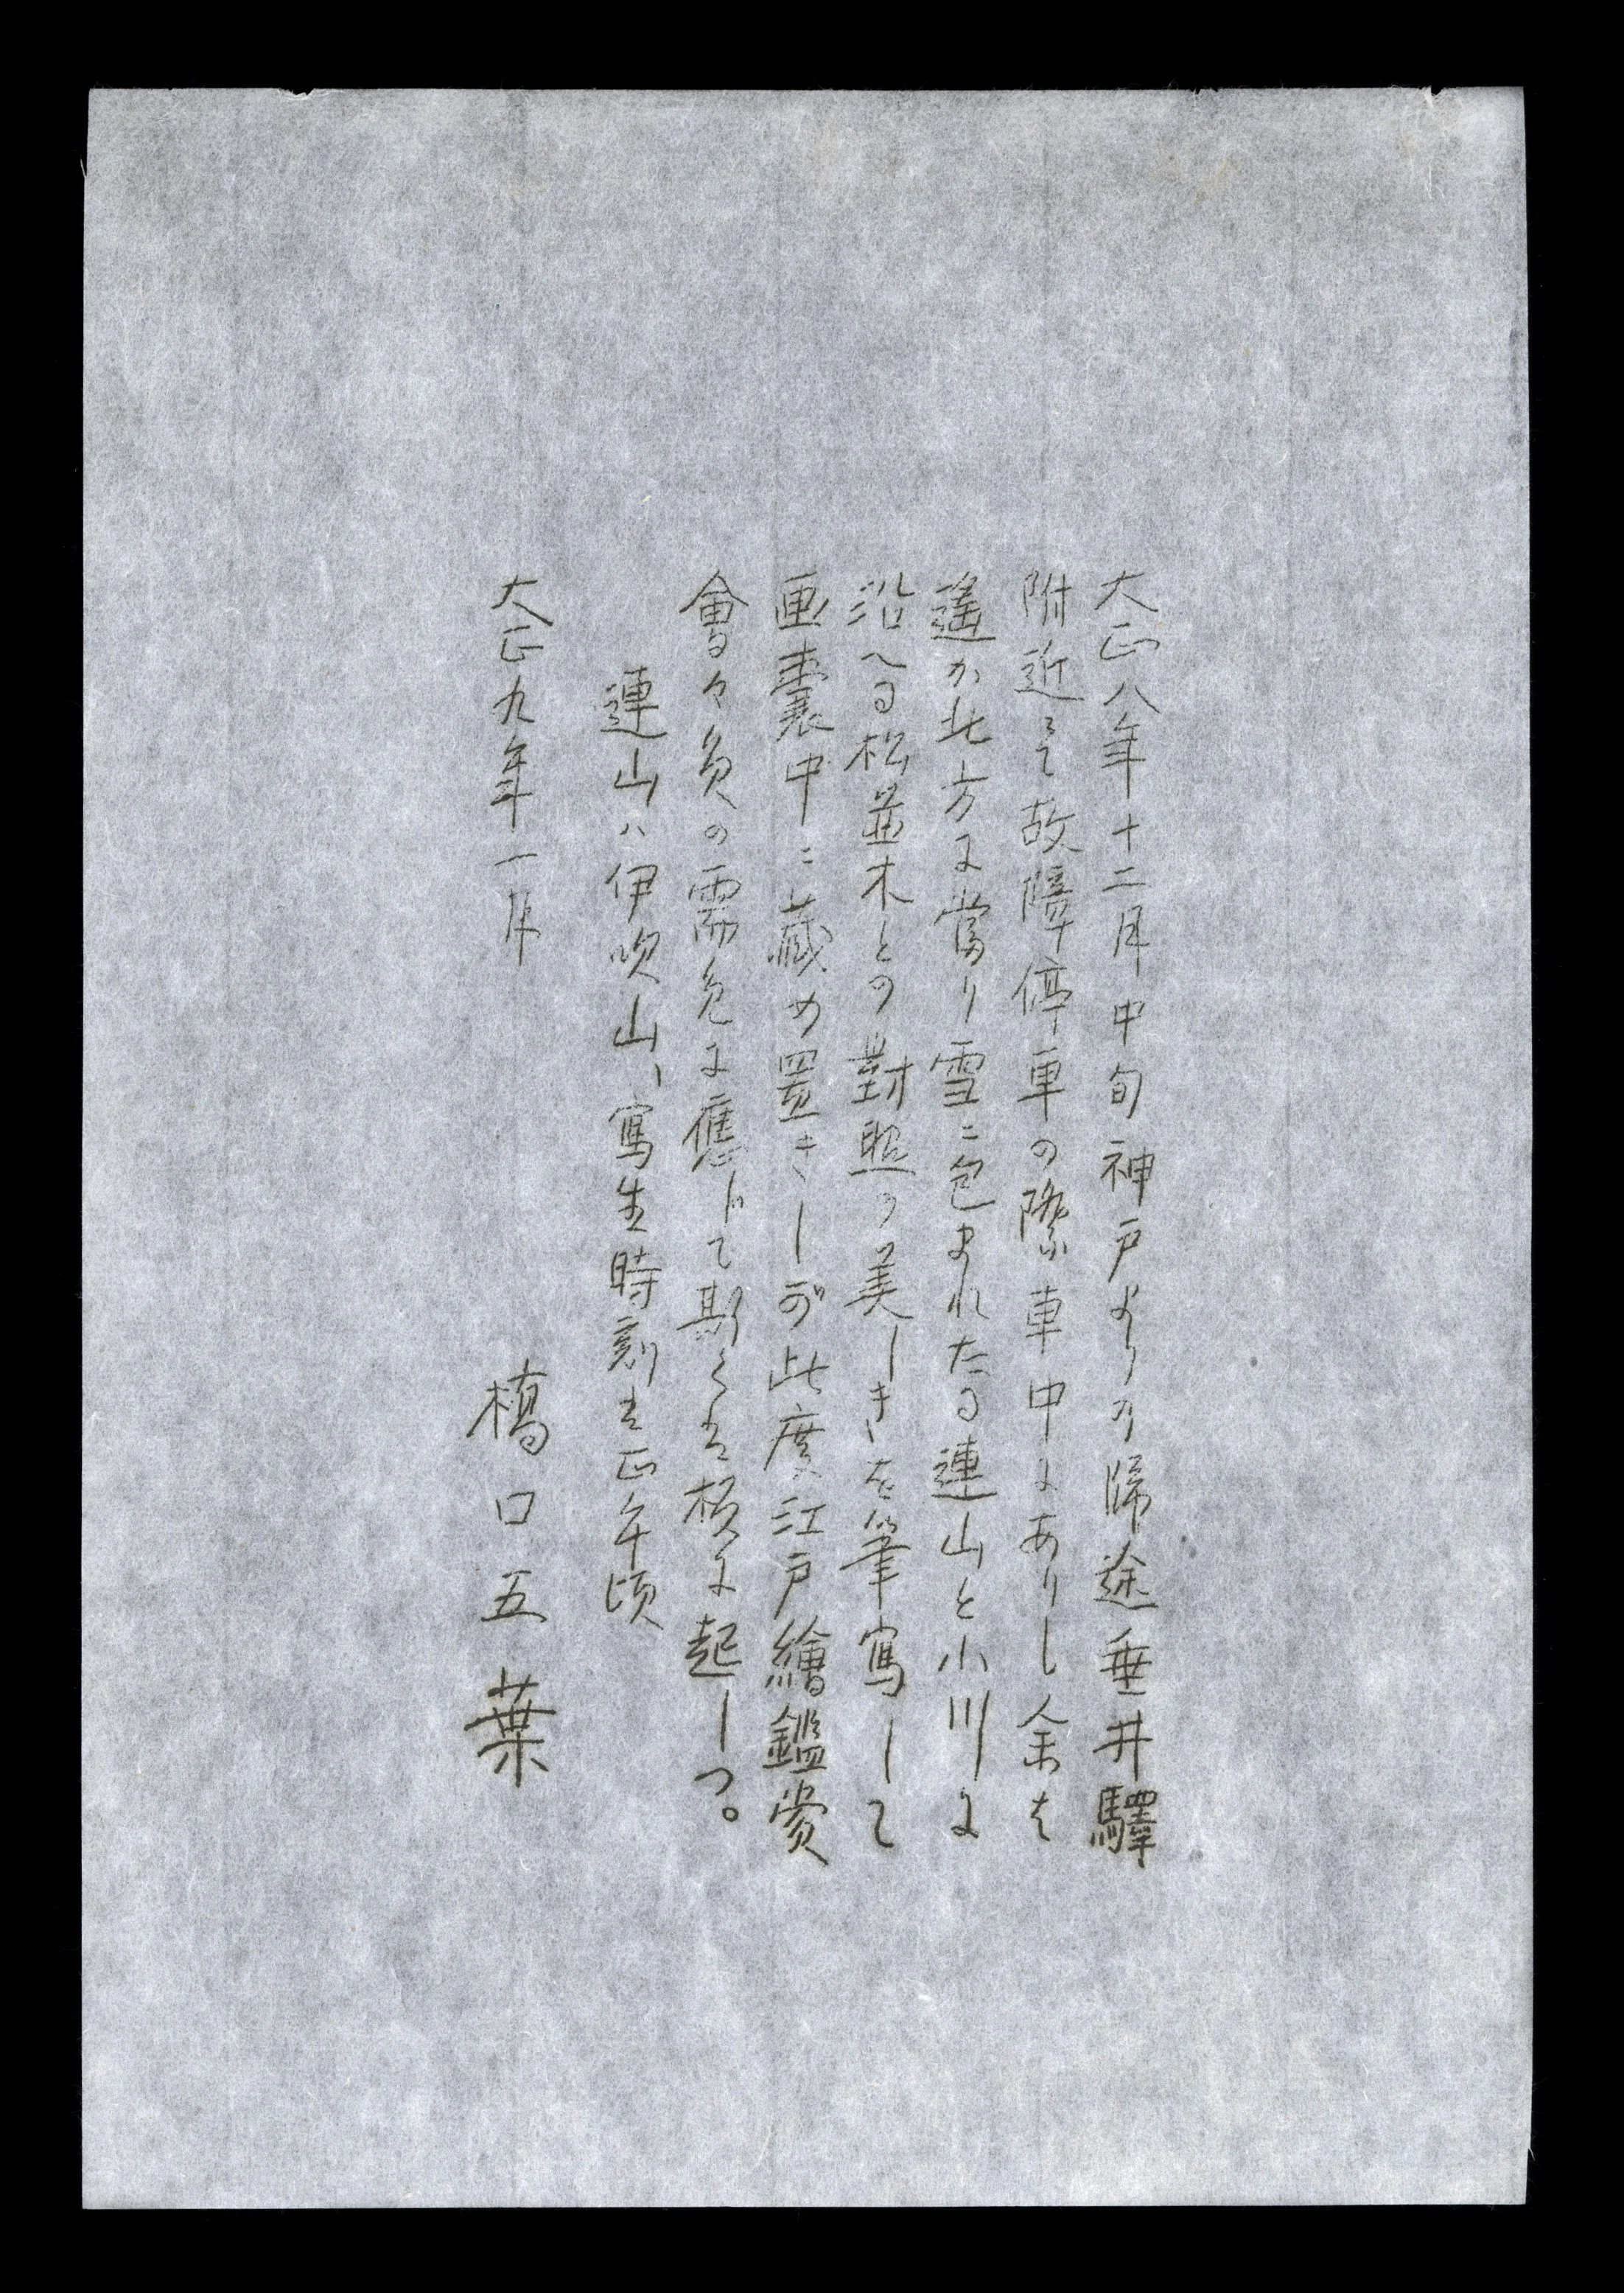 大正八年十二月中旬神戸よりの帰途垂井驛
附近にて故障停車の際車中にありし余は
遙か北方に當り雪に包まれたる連山と小川に
沿へる松並木との對照の美しきを筆寫して
画嚢中に蔵め置きしが此度江戸繪鑑賞
會々員の需めに應じて斯くは板に起しつ。
連山ハ伊吹山、寫生時刻は正午頃
大正九年一月
橋口五葉